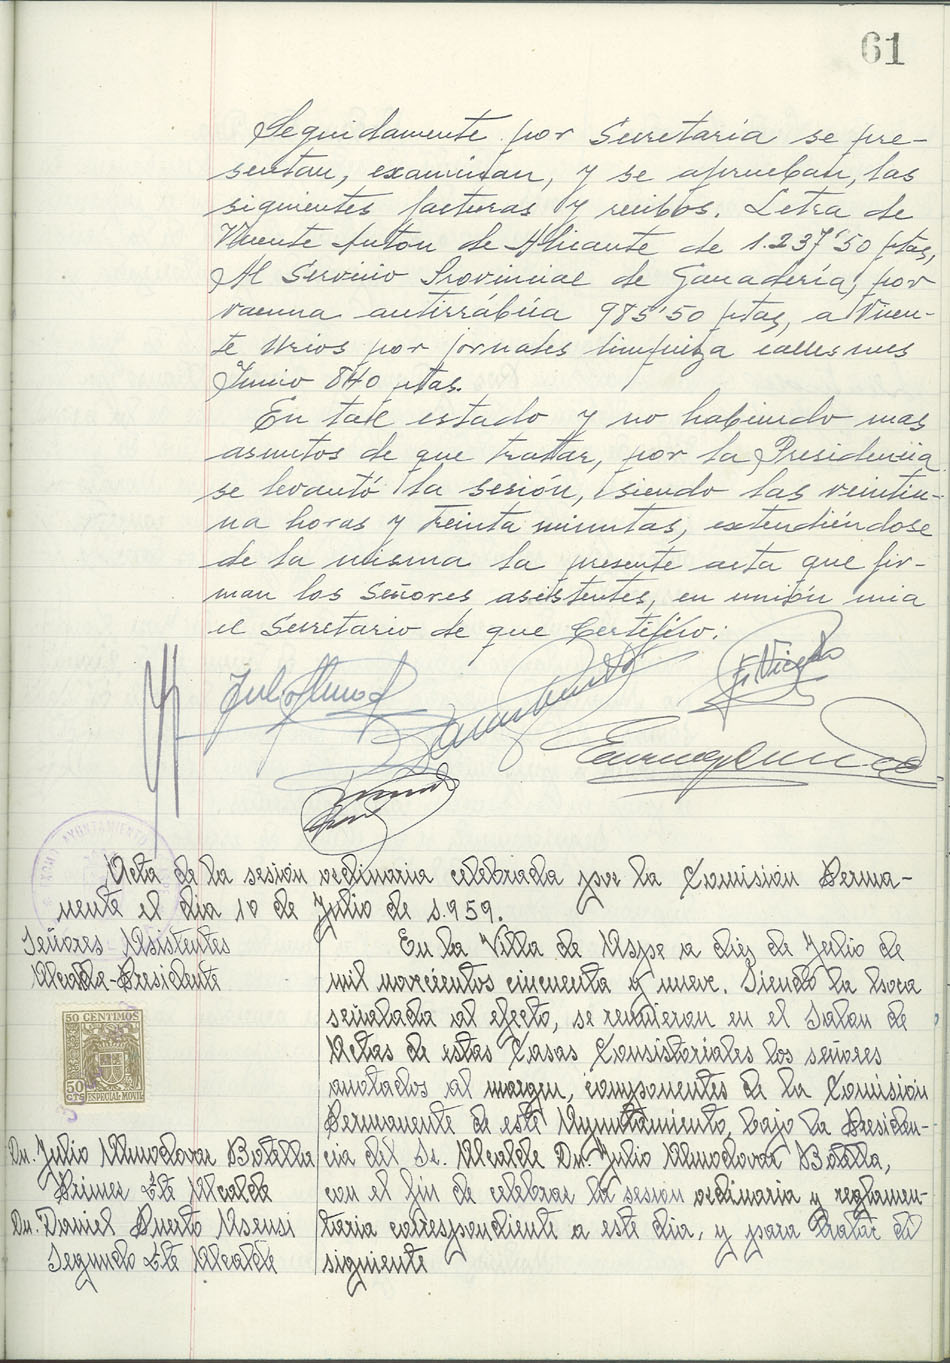 61
Seguidamente por Secretaría se pre-
sentan, examinan, y se aprueban, las
siguientes facturas y recibos. Letra de
Vicente Anton de Alicante de 1.237'50 ptas,
Al Servicio Provincial de Ganadería, por
vacuna antirrábica 985'50 ptas, a Vicen-
te Urios por jornales limpieza calles mes
Junio 840 ptas.
En tal estado y no habiendo mas
asuntos de que tratar, por la Presidencia
se levantó la sesión, siendo las veintiu-
na horas y treinta minutos, extendiéndose
de la misma la presente acta que fir-
man los Señores asistentes, en unión mia
el Secretario de que Certifico:
AYUNTAMIENTO
Acta de la sesión ordinaria celebrada por la Comisión Perma-
nente el dia 10 de Julio de 1.959.
Señores Asistentes
Alcalde-Presidente
50 CENTIMOS
50
CTS ESPECIAL MOVIL
Dn. Julio Almodovar Botella
Primer Tte Alcalde
Dn. Daniel Puerto Asensi
Segundo Tte Alcalde
En la Villa de Aspe a diez de Julio de
mil novecientos cincuenta y nueve. Siendo la hora
señalada al efecto, se reunieron en el Salon de
Actas de estas Casas Consistoriales los señores
anotados al margen, componentes de la Comisión
Permanente de este Ayuntamiento, bajo la Presiden-
cia del Sr. Alcalde Dn. Julio Almodovar Botella,
con el fin de celebrar la sesion ordinaria y reglamen-
taria correspondiente a este dia, y para tratar lo
siguiente